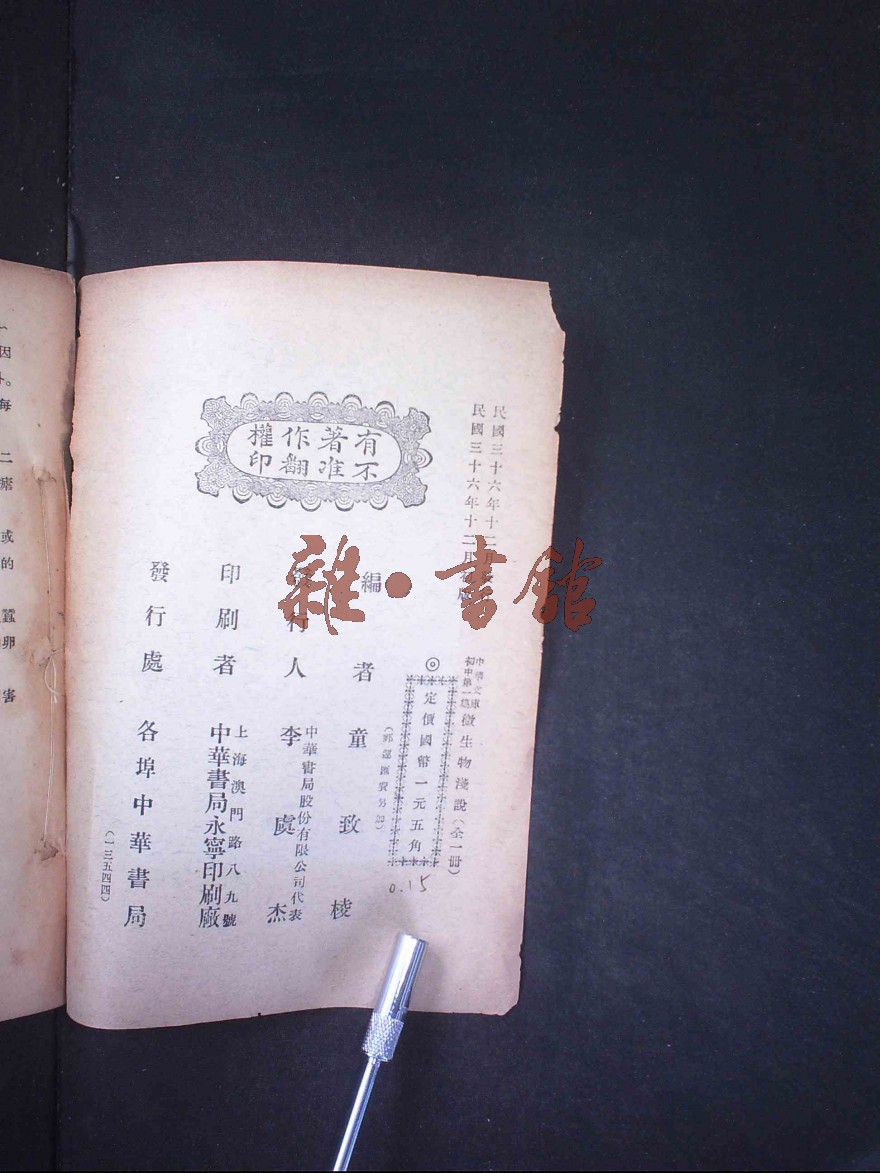 民國三十六年十二月發
民國三十六年十二月初版
中華文庫
初中第一集
微生物淺說（全一冊）
◎定價國幣一元五角
（郵運匯費另加）
0.15
有著作權
不准翻印
編者 童致棱
發行人 李虞杰
中華書局股份有限公司代表
印刷者 中華書局永寧印刷廠
上海澳門路八九號
發行處 各埠中華書局
（一三五四四）
雜·書館
因
外。
每
二
或
的
蠶
卵
害